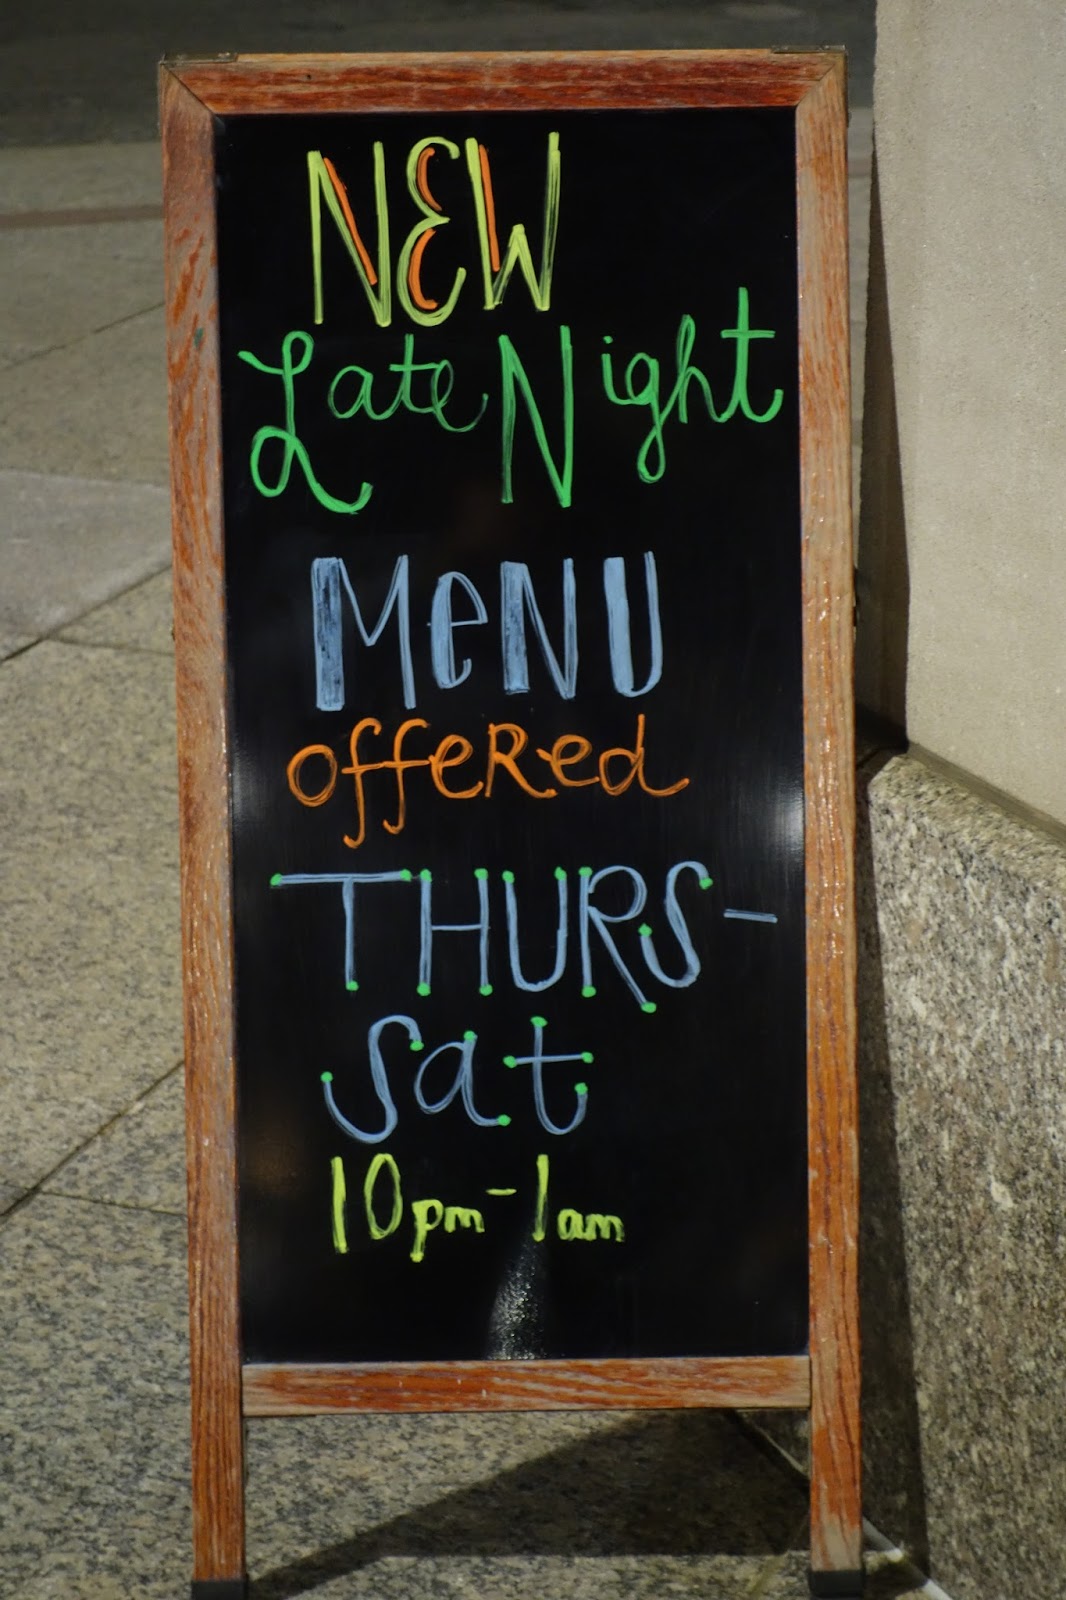 NEW
Late Night
MeNU
offeRed
THURS-
Sat
10pm-1am